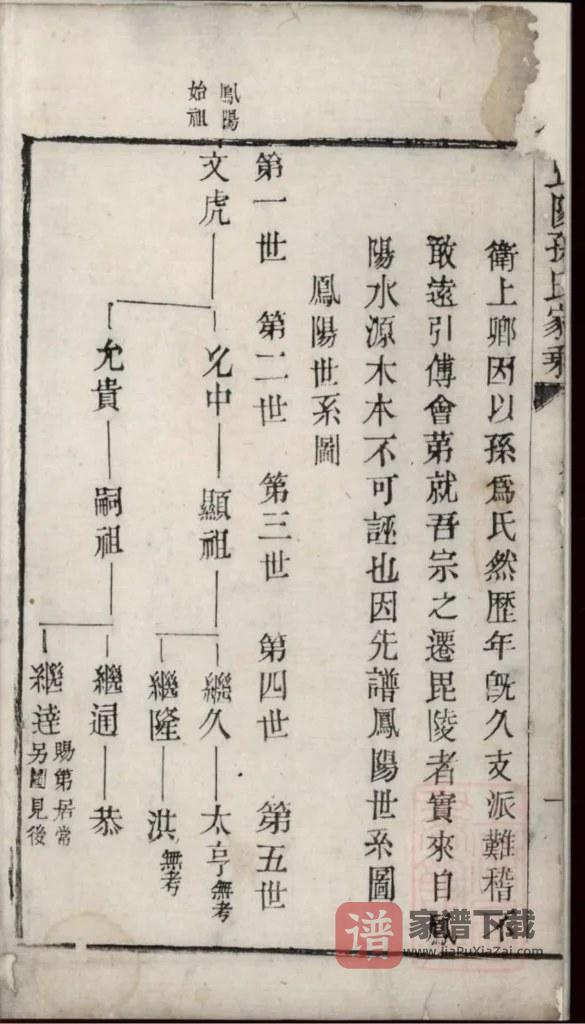 陽孫氏家乘
衛上卿因以孫爲氏然歷年旣久支派難稽不
敢遠引傅會第就吾宗之遷毘陵者實來自鳳
陽水源木本不可誣也因先譜鳳陽世系圖
鳳陽世系圖
第一世 第二世 第三世 第四世 第五世
鳳陽
始祖
文虎 允中 顯祖 繼久 太亨無考
繼隆 洪無考
允貴 嗣祖 繼逈 恭
繼達 賜第居常
另圖見後
一
谱 家谱下载
www.jiaPuXiaZai.com